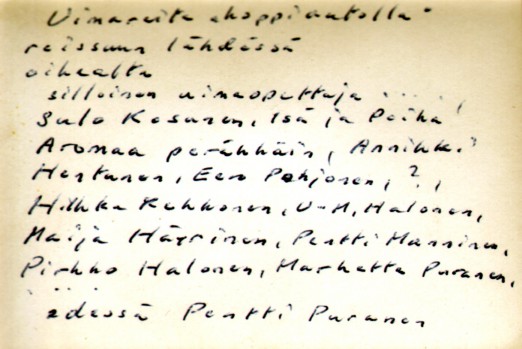 Uimareita shoppiautolla
reissuun lähdössä
oikealta
silloinen uimaopettaja
Sulo Kosunen, Isä ja Poika
Aromaa peräkkäin, Annikki
Hertunen, Eero Pohjonen, ?,
Hilkka Kekkonen, U-M, Halonen,
Maija Häyrinen, Pentti Manninen,
Pirkko Halonen, Marketta Puranen,
edessä Pentti Puranen